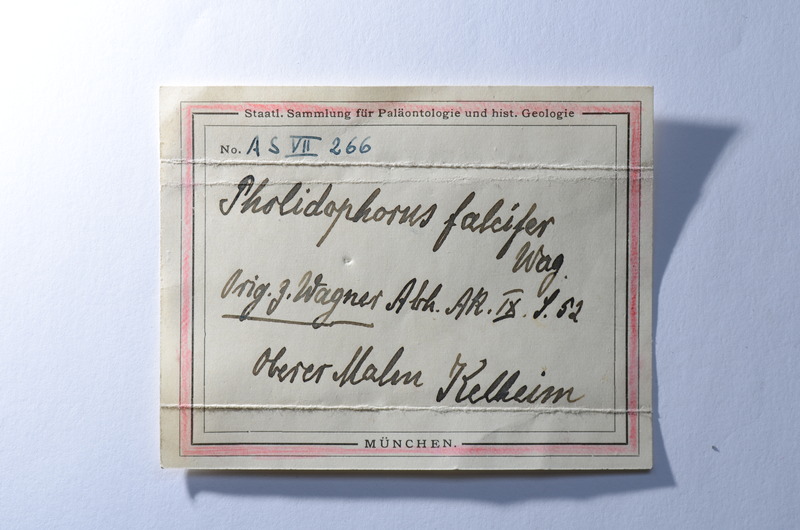 Staatl. Sammlung für Paläontologie und hist. Geologie
No. AS VII 266
Pholidophorus falcifer
Wag.
Orig. z. Wagner Abh. Ak. IX. S. 52
Oberer Malm Kelheim
MÜNCHEN.